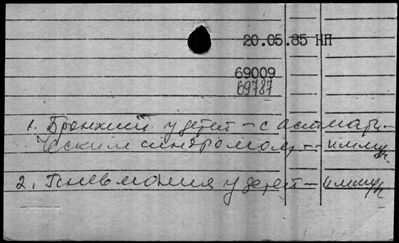 20.05.85 НП
69009
69787
1. Бронхит у детей – с астмати-
ческим синдромом – иммун.
2. Пневмония у детей – иммун.